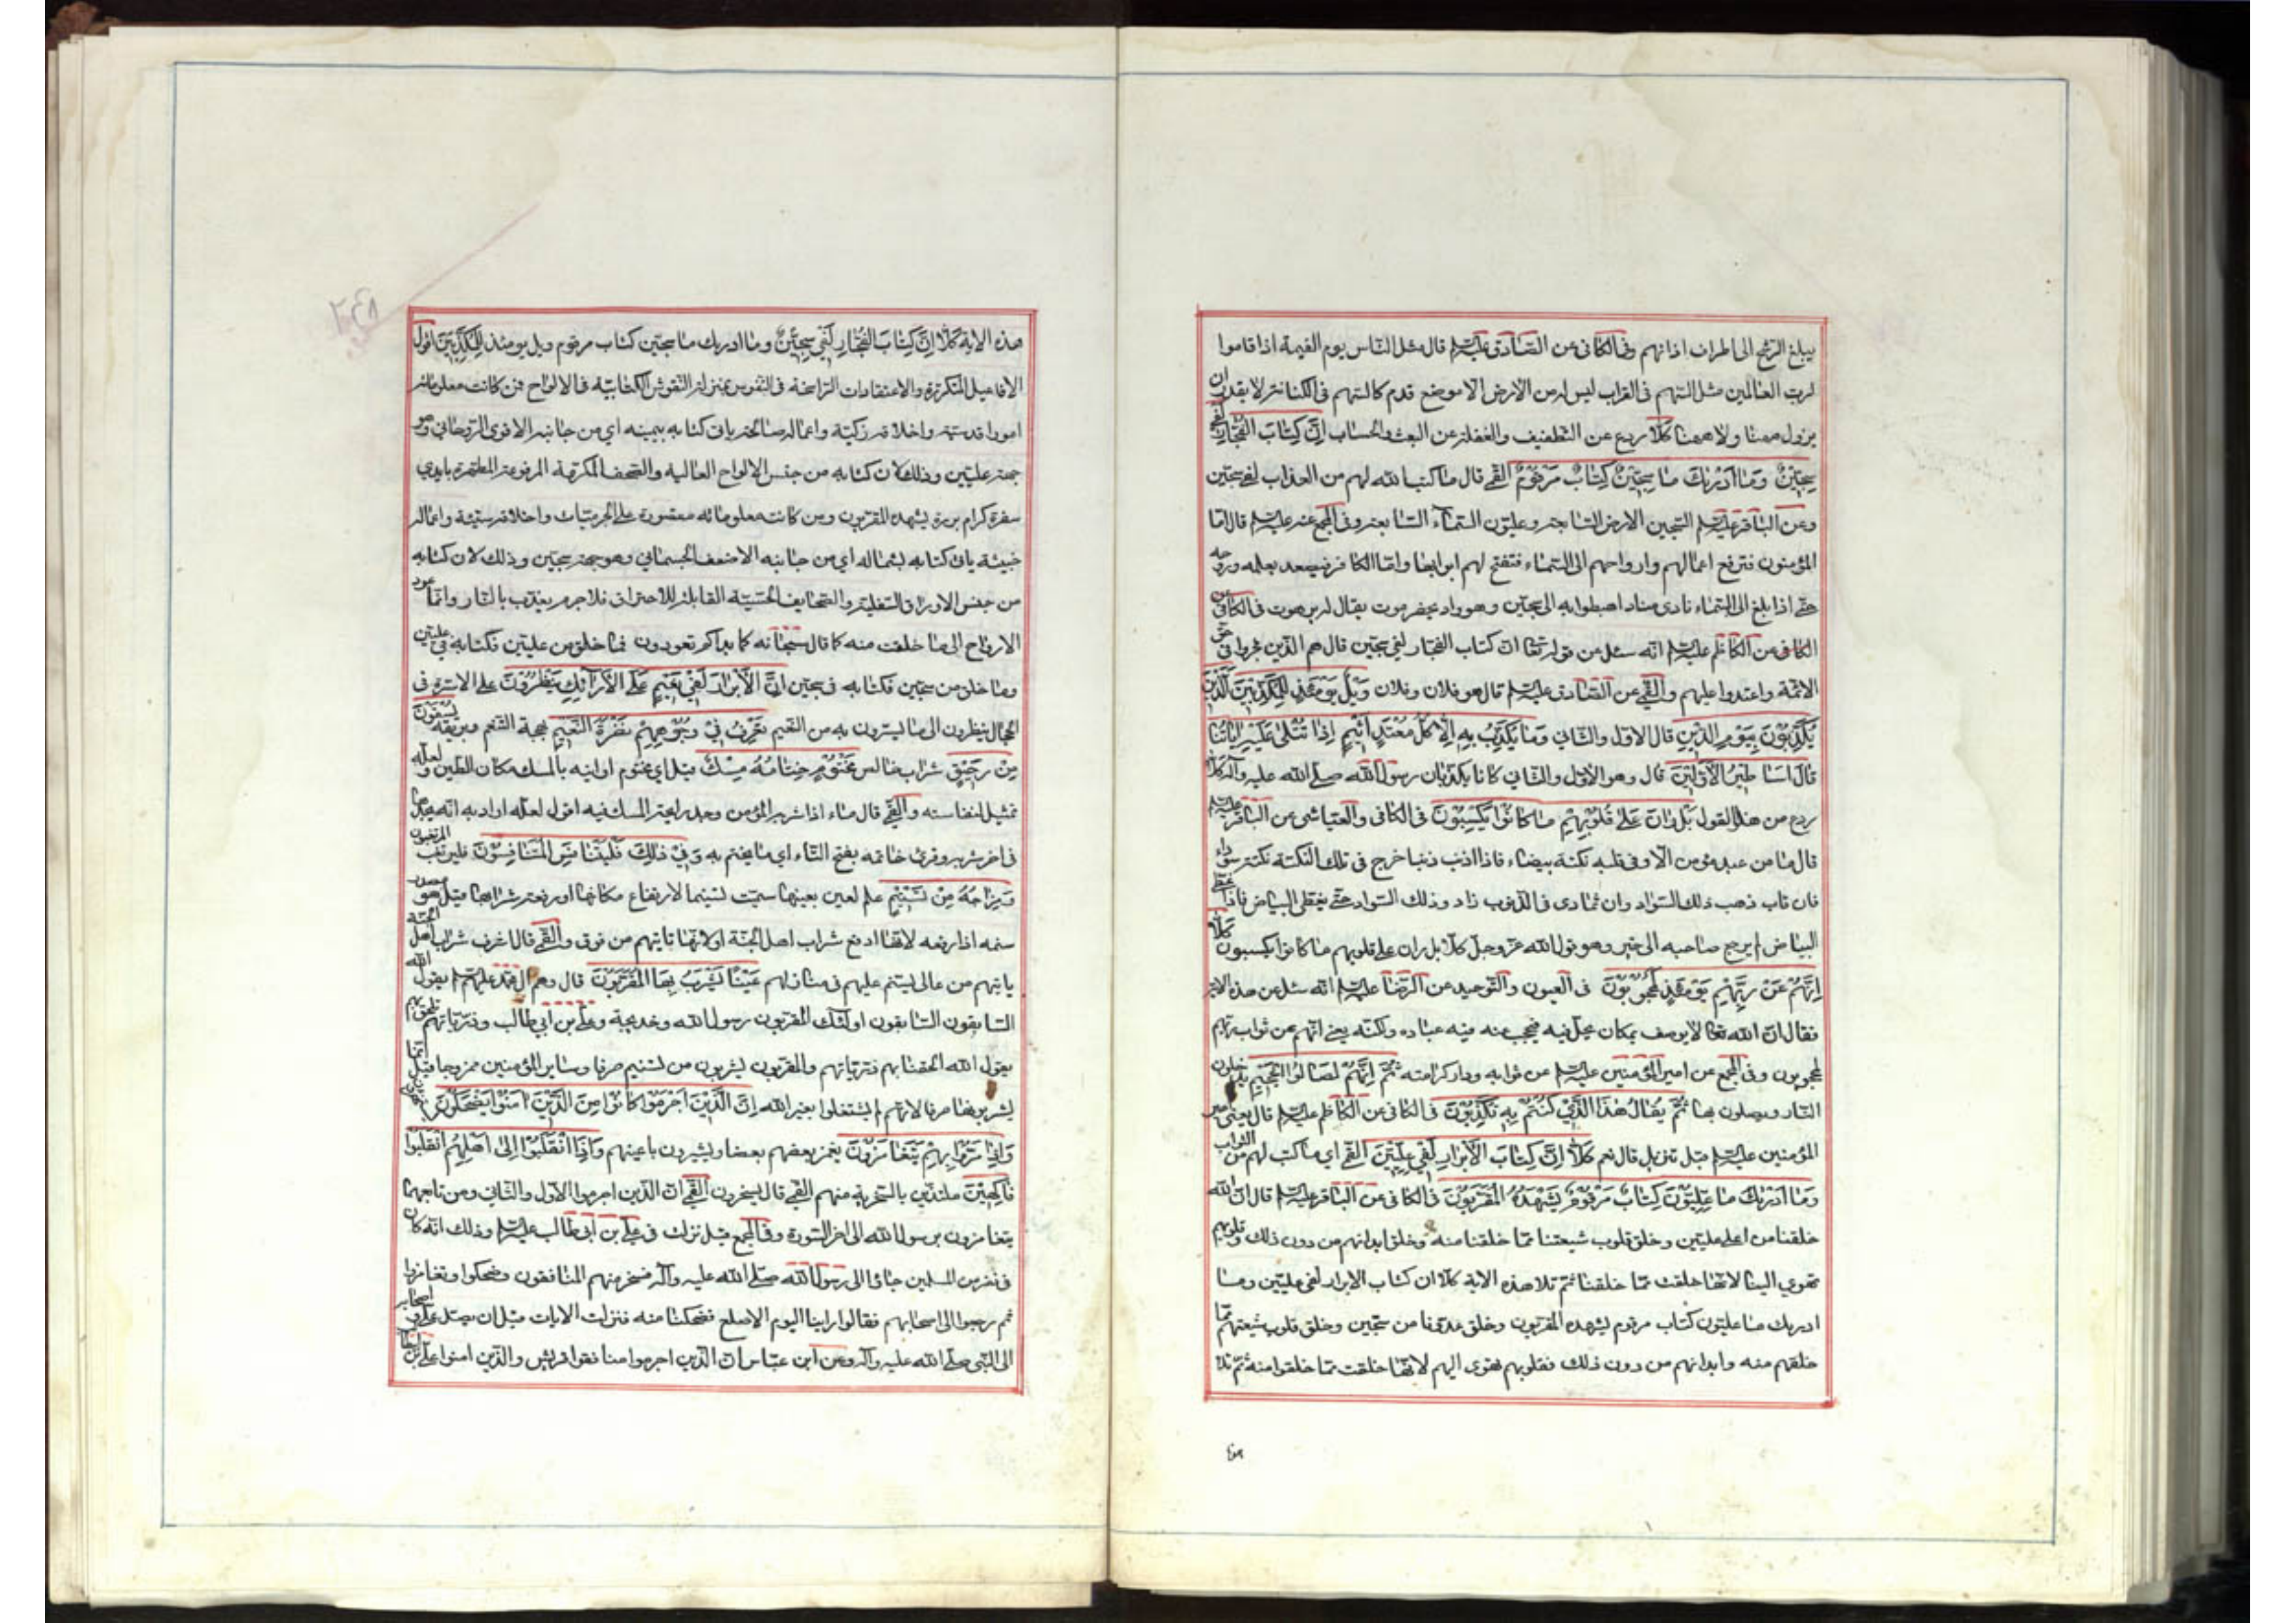 يبلغ الرشح الى اطراف اذانهم وفى الكافى عن الصادق عليه السلم قال مثل الناس يوم القيمة اذا قاموا
لرب العالمين مثل السهم فى القراب ليس له من الارض الا موضع قدمه كالسهم فى الكنانة لا يقدر ان
يزول ههنا ولا ههنا كلا ردع عن التطفيف والغفلة عن البعث والحساب اِنَّ كِتابَ الفُجّارِ لَفى
سِجّينٌ وَما اَدْريكَ ما سِجّينٌ كِتابٌ مَرْقُومٌ القمى قال ما كتب الله لهم من العذاب لفى سجين
وعن الباقر عليه السلم السجين الارض السابعة وعليون السماء السابعة وفى المجمع عنه عليه السلم قال اما
المؤمنون فترفع اعمالهم وارواحهم الى السماء فتفتح لهم ابوابها واما الكافر فيصعد بعمله وروحه
حتى اذا بلغ الى السماء نادى مناد اهبطوا به الى سجين وهو واد بحضرموت يقال له برهوت فى الكافى
الكافى عن الكاظم عليه السلم انه سئل عن قوله تعالى ان كتاب الفجار لفى سجين قال هم الذين فجروا فى حق
الائمة واعتدوا عليهم والقمى عن الصادق عليه السلم قال هو فلان وفلان وَيْلٌ يَوْمَئِذٍ لِلْمُكَذِّبينَ اَلَّذينَ
يُكَذِّبُونَ بِيَوْمِ الدّينِ قال الاول والثانى وَما يُكَذِّبُ بِهِ اِلّا كُلُّ مُعْتَدٍ اَثيمٍ اِذا تُتْلى عَلَيْهِ اياتُنا
قالَ اَساطيرُ الْاَوَّلينَ قال وهو الاول والثانى كانا يكذبان رسول الله صلى الله عليه وآله كَلّا
ردع عن هذا القول بَلْ رانَ عَلى قُلُوبِهِمْ ما كانُوا يَكْسِبُونَ فى الكافى والعياشى عن الباقر عليه السلم
قال ما من عبد مؤمن الا وفى قلبه نكتة بيضاء فاذا اذنب ذنبا خرج فى تلك النكتة نكتة سوداء
فان تاب ذهب ذلك السواد وان تمادى فى الذنوب زاد وذلك السواد حتى يغطى البياض فاذا غطى
البياض لم يرجع صاحبه الى خير وهو قول الله عز وجل كلا بل ران على قلوبهم ما كانوا يكسبون كَلّا
اِنَّهُمْ عَنْ رَبِّهِمْ يَوْمَئِذٍ لَمَحْجُوبُونَ فى العيون والتوحيد عن الرضا عليه السلم انه سئل عن هذه الاية
فقال ان الله تعالى لا يوصف بمكان يحل فيه فيحجب عنه فيه عباده ولكنه يعنى انهم عن ثواب ربهم
لمحجوبون وفى المجمع عن امير المؤمنين عليه السلم عن ثوابه ودار كرامته ثُمَّ اِنَّهُمْ لَصالُوا الْجَحيمِ يدخلون
النار ويصلون بها ثُمَّ يُقالُ هذَا الَّذى كُنْتُمْ بِهِ تُكَذِّبُونَ فى الكافى عن الكاظم عليه السلم قال يعنى امير
المؤمنين عليه السلم قيل تنزيل قال نعم كَلّا اِنَّ كِتابَ الْاَبْرارِ لَفى عِلِّيّينَ القمى اى ما كتب لهم من الثواب
وَما اَدْريكَ ما عِلِّيُّونَ كِتابٌ مَرْقُومٌ يَشْهَدُهُ الْمُقَرَّبُونَ فى الكافى عن الباقر عليه السلم قال ان الله
خلقنا من اعلى عليين وخلق قلوب شيعتنا مما خلقنا منه وخلق ابدانهم من دون ذلك وقلوبهم
تهوى الينا لانها خلقت مما خلقنا ثم تلا هذه الاية كلا ان كتاب الابرار لفى عليين وما
ادريك ما عليون كتاب مرقوم يشهده المقربون وخلق عدونا من سجين وخلق قلوب شيعتهم مما
خلقهم منه وابدانهم من دون ذلك فقلوبهم تهوى اليهم لانها خلقت مما خلقوا منه ثم تلا
هذه
هذه الاية كَلّا اِنَّ كِتابَ الفُجّارِ لَفى سِجّينٌ وما ادريك ما سجين كتاب مرقوم ويل يومئذ لِلْمُكَذِّبينَ اقول
الافاعيل المتكررة والاعتقادات الراسخة فى النفوس بمنزلة النقوش الكتابية فى الالواح فمن كانت معلوماته
امورا قدسية واخلاقه زكية واعماله صالحة ياتى كتابه بيمينه اى من جانبه الاقوى الروحانى وهو
جهة عليين وذلك لان كتابه من جنس الالواح العالية والصحف المكرمة المرفوعة المطهرة بايدى
سفرة كرام بررة يشهده المقربون ومن كانت معلوماته مقصورة على الجرميات واخلاقه سيئة واعماله
خبيثة ياتى كتابه بشماله اى من جانبه الاضعف الجسمانى وهو جهة سجين وذلك لان كتابه
من جنس الاوراق السفلية والصحايف الحسية القابلة للاحتراق فلا جرم يعذب بالنار وانما عود
الارواح الى ما خلقت منه كما قال سبحانه كما بداكم تعودون فما خلق من عليين فكتابه فى عليين
وما خلق من سجين فكتابه فى سجين اِنَّ الْاَبْرارَ لَفى نَعيمٍ عَلَى الْاَرائِكِ يَنْظُرُونَ على الاسرة فى
الحجال ينظرون الى ما يسرون به من النعيم تَعْرِفُ فى وُجُوهِهِمْ نَضْرَةَ النَّعيمِ بهجة التنعم وبريقه يُسْقَوْنَ
مِنْ رَحيقٍ شراب خالص مَخْتُومٍ خِتامُهُ مِسْكٌ قيل اى مختوم اوانيه بالمسك مكان الطين ولعله
تمثيل لنفاسته والقمى قال ماء اذا شربه المؤمن وجد رايحة المسك فيه اقول لعله اراد به انه يجدها
فى اخر شربه وقرئ خاتمه بفتح التاء اى ما يختم به وَفى ذلِكَ فَلْيَتَنافَسِ الْمُتَنافِسُونَ فليرتغب المرتغبون
وَمِزاجُهُ مِنْ تَسْنيمٍ علم لعين بعينها سميت تسنيما لارتفاع مكانها او رفعة شرابها قيل هو مصدر
سنمه اذا رفعه لانها ارفع شراب اهل الجنة او لانها تاتيهم من فوق والقمى قال اشرف شراب اهل الجنة
ياتيهم من عالى يسنم عليهم فى منازلهم عَيْناً يَشْرَبُ بِهَا الْمُقَرَّبُونَ قال وهم ال محمد عليهم السلم يقول الله
السابقون السابقون اولئك المقربون رسول الله وخديجة وعلى بن ابى طالب وذرياتهم تلحق بهم
يقول الله الحقنا بهم ذرياتهم والمقربون يشربون من تسنيم صرفا وساير المؤمنين ممزوجا قيل انما
يشربونها صرفا لانهم لم يشتغلوا بغير الله اِنَّ الَّذينَ اَجْرَمُوا كانُوا مِنَ الَّذينَ امَنُوا يَضْحَكُونَ
وَاِذا مَرُّوا بِهِمْ يَتَغامَزُونَ يغمز بعضهم بعضا ويشيرون باعينهم وَاِذَا انْقَلَبُوا اِلى اَهْلِهِمُ انْقَلَبُوا
فاكِهينَ ملتذين بالسخرية منهم القمى قال يسخرون القمى ان الذين اجرموا الاول والثانى ومن تابعهما
يتغامزون برسول الله الى اخر السورة وفى المجمع قيل نزلت فى على بن ابى طالب عليه السلم وذلك انه كان
فى نفر من المسلمين جاؤا الى رسول الله صلى الله عليه وآله فسخر منهم المنافقون وضحكوا وتغامزوا
ثم رجعوا الى اصحابهم فقالوا راينا اليوم الاصلع فضحكنا منه فنزلت الايات قبل ان يصل على واصحابه
الى النبى صلى الله عليه وآله وعن ابن عباس ان الذين اجرموا منافقوا قريش والذين امنوا على بن